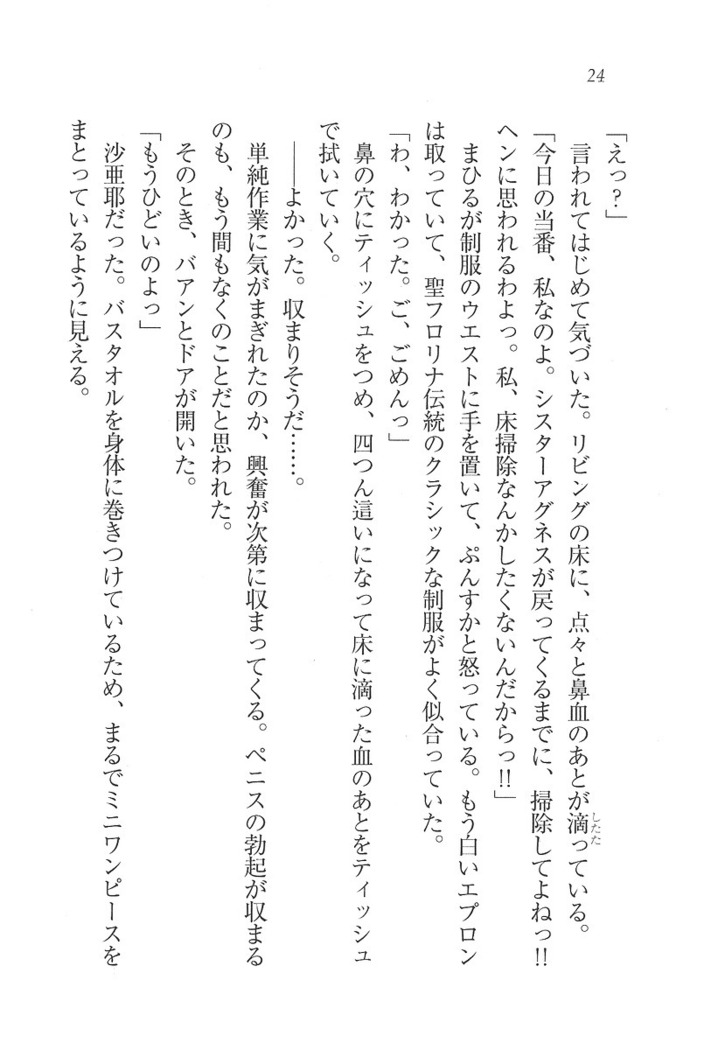 24
「えっ？」
　言われてはじめて気づいた。リビングの床に、点々と鼻血のあとが滴っている。
したた
「今日の当番、私なのよ。シスターアグネスが戻ってくるまでに、掃除してよねっ!!
ヘンに思われるわよっ。私、床掃除なんかしたくないんだからっ!!」
　まひるが制服のウエストに手を置いて、ぷんすかと怒っている。もう白いエプロン
は取っていて、聖フロリナ伝統のクラシックな制服がよく似合っていた。
「わ、わかった。ご、ごめんっ」
　鼻の穴にティッシュをつめ、四つん這いになって床に滴った血のあとをティッシュ
で拭いていく。
　――よかった。収まりそうだ……。
　単純作業に気がまぎれたのか、興奮が次第に収まってくる。ペニスの勃起が収まる
のも、もう間もなくのことだと思われた。
　そのとき、バアンとドアが開いた。
「もうひどいのよっ」
　沙亜耶だった。バスタオルを身体に巻きつけているため、まるでミニワンピースを
まとっているように見える。